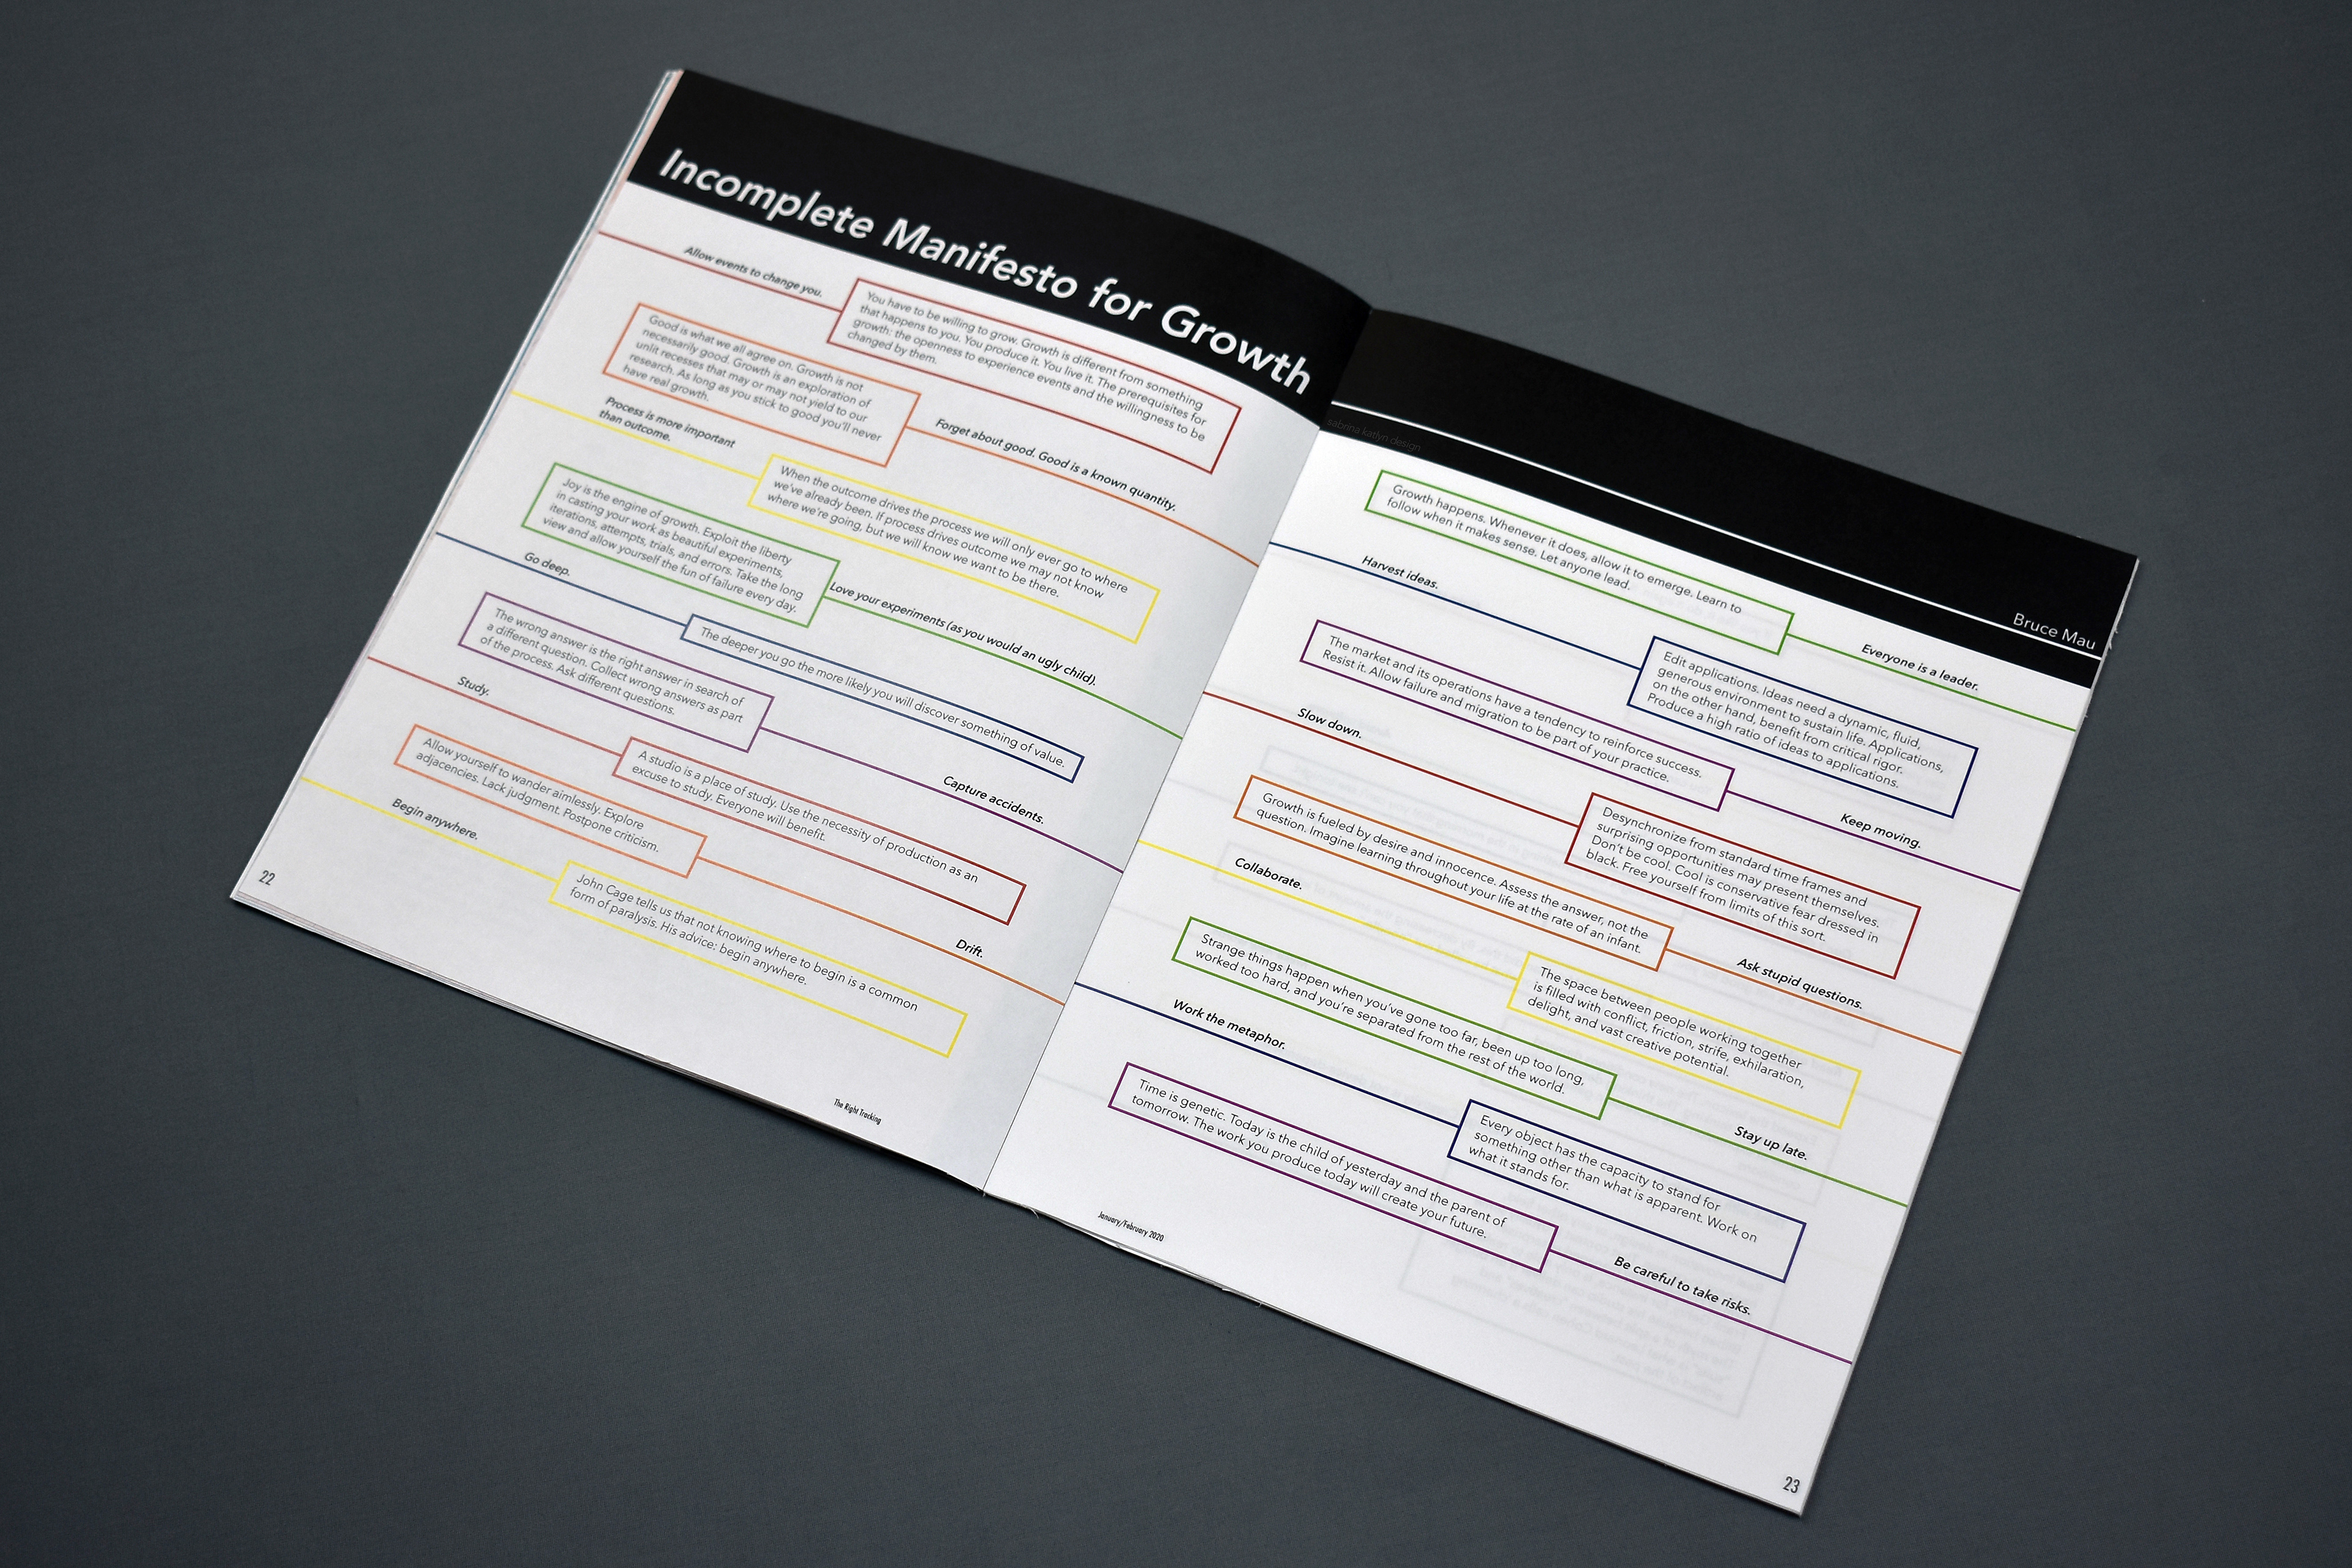 Incomplete Manifesto for Growth
Allow events to change you.
You have to be willing to grow. Growth is different from something
that happens to you. You produce it. You live it. The prerequisites for
growth: the openness to experience events and the willingness to be
changed by them.
Good is what we all agree on. Growth is not
necessarily good. Growth is an exploration of
unlit recesses that may or may not yield to our
research. As long as you stick to good you'll never
have real growth.
Forget about good. Good is a known quantity.
Process is more important
than outcome.
When the outcome drives the process we will only ever go to where
we've already been. If process drives outcome we may not know
where we're going, but we will know we want to be there.
Joy is the engine of growth. Exploit the liberty
in casting your work as beautiful experiments,
iterations, attempts, trials, and errors. Take the long
view and allow yourself the fun of failure every day.
Love your experiments (as you would an ugly child).
Go deep.
The deeper you go the more likely you will discover something of value.
The wrong answer is the right answer in search of
a different question. Collect wrong answers as part
of the process. Ask different questions.
Capture accidents.
Study.
A studio is a place of study. Use the necessity of production as an
excuse to study. Everyone will benefit.
Allow yourself to wander aimlessly. Explore
adjacencies. Lack judgment. Postpone criticism.
Drift.
Begin anywhere.
John Cage tells us that not knowing where to begin is a common
form of paralysis. His advice: begin anywhere.
22
The Right Tracking
sabrina katlyn design
Bruce Mau
Growth happens. Whenever it does, allow it to emerge. Learn to
follow when it makes sense. Let anyone lead.
Everyone is a leader.
Harvest ideas.
Edit applications. Ideas need a dynamic, fluid,
generous environment to sustain life. Applications,
on the other hand, benefit from critical rigor.
Produce a high ratio of ideas to applications.
The market and its operations have a tendency to reinforce success.
Resist it. Allow failure and migration to be part of your practice.
Keep moving.
Slow down.
Desynchronize from standard time frames and
surprising opportunities may present themselves.
Don't be cool. Cool is conservative fear dressed in
black. Free yourself from limits of this sort.
Growth is fueled by desire and innocence. Assess the answer, not the
question. Imagine learning throughout your life at the rate of an infant.
Ask stupid questions.
Collaborate.
The space between people working together
is filled with conflict, friction, strife, exhilaration,
delight, and vast creative potential.
Strange things happen when you've gone too far, been up too long,
worked too hard, and you're separated from the rest of the world.
Stay up late.
Work the metaphor.
Every object has the capacity to stand for
something other than what is apparent. Work on
what it stands for.
Time is genetic. Today is the child of yesterday and the parent of
tomorrow. The work you produce today will create your future.
Be careful to take risks.
January/February 2020
23